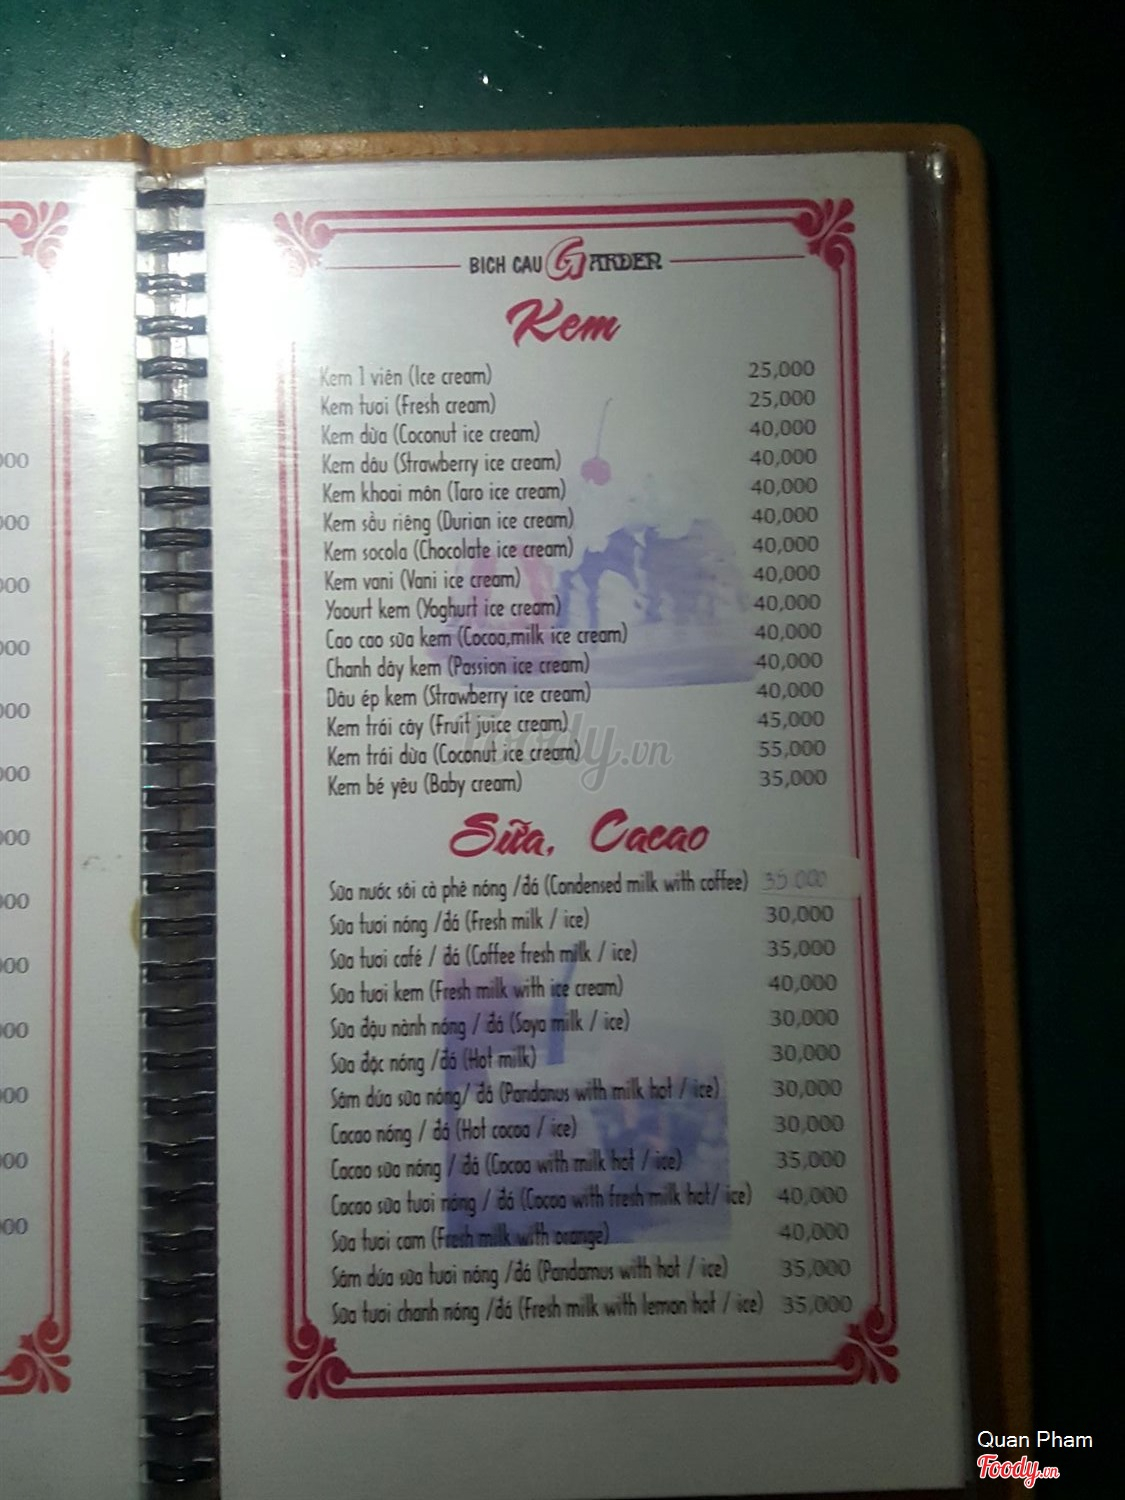 BICH CAU GARDER
Kem
Kem 1 viên (Ice cream) 25,000
Kem tươi (Fresh cream) 25,000
Kem dừa (Coconut ice cream) 40,000
Kem dâu (Strawberry ice cream) 40,000
Kem khoai môn (Taro ice cream) 40,000
Kem sầu riêng (Durian ice cream) 40,000
Kem socola (Chocolate ice cream) 40,000
Kem vani (Vani ice cream) 40,000
Yaourt kem (Yoghurt ice cream) 40,000
Cao cao sữa kem (Cocoa,milk ice cream) 40,000
Chanh dây kem (Passion ice cream) 40,000
Dâu ép kem (Strawberry ice cream) 40,000
Kem trái cây (Fruit juice cream) 45,000
Kem trái dừa (Coconut ice cream) 55,000
Kem bé yêu (Baby cream) 35,000
Foody.vn
Sữa, Cacao
Sữa nước sôi cà phê nóng /đá (Condensed milk with coffee) 35.000
Sữa tươi nóng /đá (Fresh milk / ice) 30,000
Sữa tươi café / đá (Coffee fresh milk / ice) 35,000
Sữa tươi kem (Fresh milk with ice cream) 40,000
Sữa đậu nành nóng / đá (Soya milk / ice) 30,000
Sữa độc nóng /đá (Hot milk) 30,000
Sâm dứa sữa nóng/ đá (Pandanus with milk hot / ice) 30,000
Cacao nóng / đá (Hot cocoa / ice) 30,000
Cacao sữa nóng / đá (Cocoa with milk hot / ice) 35,000
Cacao sữa tươi nóng / đá (Cocoa with fresh milk hot/ ice) 40,000
Sữa tươi cam (Fresh milk with orange) 40,000
Sâm dứa sữa tươi nóng /đá (Pandamus with hot / ice) 35,000
Sữa tươi chanh nóng /đá (Fresh milk with lemon hot / ice) 35,000
Quan Pham
Foody.vn